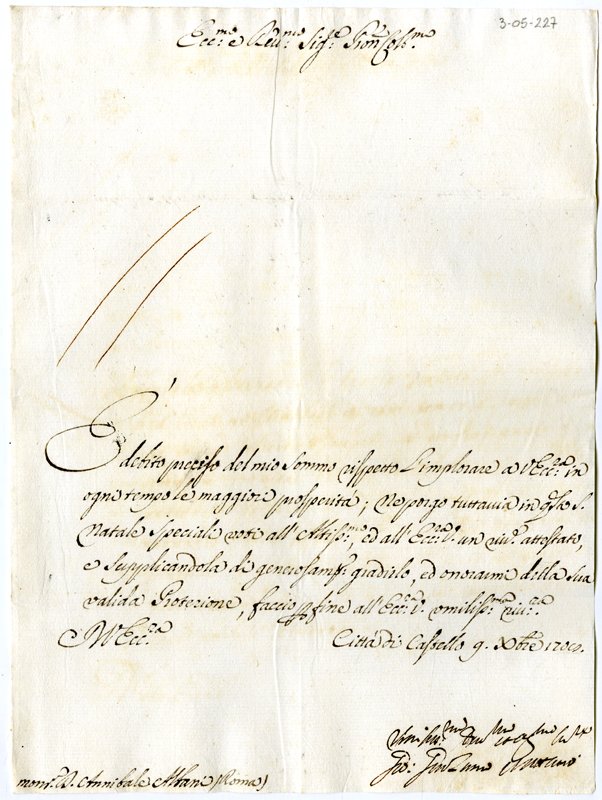 3-05-227
Ecc.mo e Reu.mo Sig.re Pron Col.mo
È debito preciso del mio Sommo rispetto l'implorare a V Ecc.za in
ogni tempo le maggiori prosperità; Ne porgo tuttavia in q.sto S.
Natale speciale voti all'Altiss.mo, ed all'Ecc.za V. un riu.e attestato,
e Supplicandola de generosam.te gradirlo, ed onorarmi della sua
valida Protezione, faccio fine all'Ecc.za V. umiliss.me riu.za
Di V Ecc.za Città di Castello 9. Xbre
mons.r D. Annibale Albani (Roma)